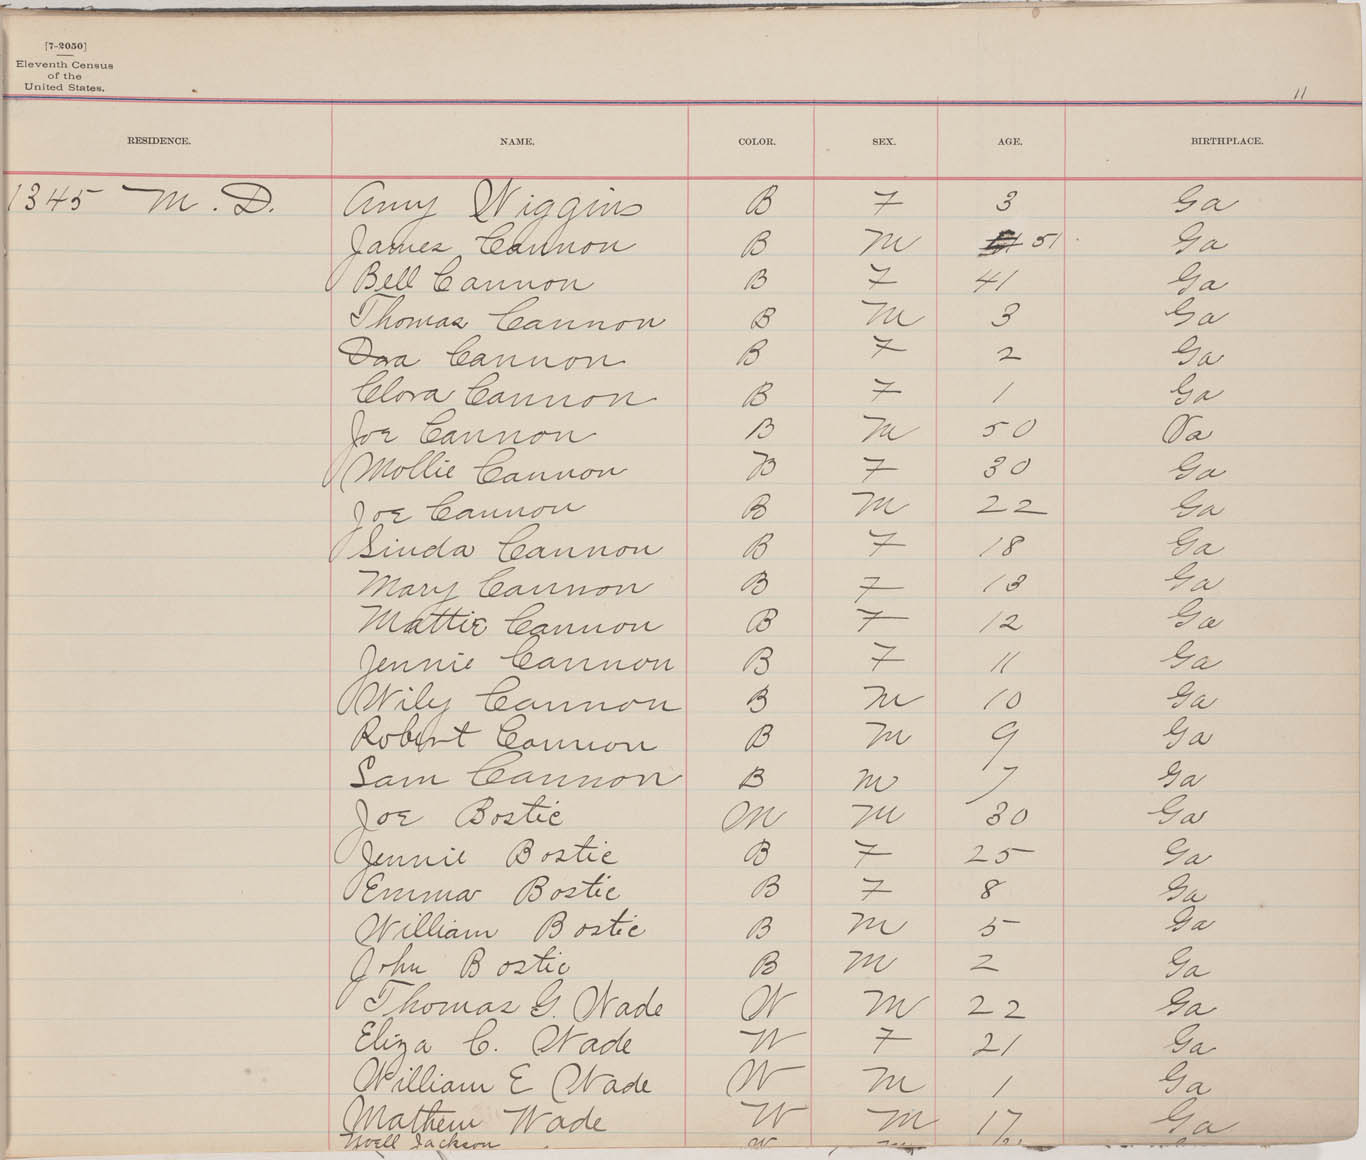 [7-2050]
Eleventh Census
of the
United States.
11
RESIDENCE. NAME. COLOR. SEX. AGE. BIRTHPLACE.
1345 M. D. Amy Wiggins B F 3 Ga
James Cannon B M 51 Ga
Bell Cannon B F 41 Ga
Thomas Cannon B M 3 Ga
Cannon B F 2 Ga
Clora Cannon B F 1 Ga
Joe Cannon B M 50 Va
Mollie Cannon B F 30 Ga
Joe Cannon B M 22 Ga
Linda Cannon B F 18 Ga
Mary Cannon B F 13 Ga
Mattie Cannon B F 12 Ga
Jennie Cannon B F 11 Ga
Wily Cannon B M 10 Ga
Robert Cannon B M 9 Ga
Sam Cannon B M 7 Ga
Joe Bostic M M 30 Ga
Jennie Bostic B F 25 Ga
Emma Bostic B F 8 Ga
William Bostic B M 5 Ga
John Bostic B M 2 Ga
Thomas G. Wade W M 22 Ga
Eliza C. Wade W F 21 Ga
William E Wade W M 1 Ga
Mathew Wade W M 17 Ga
Jackson W